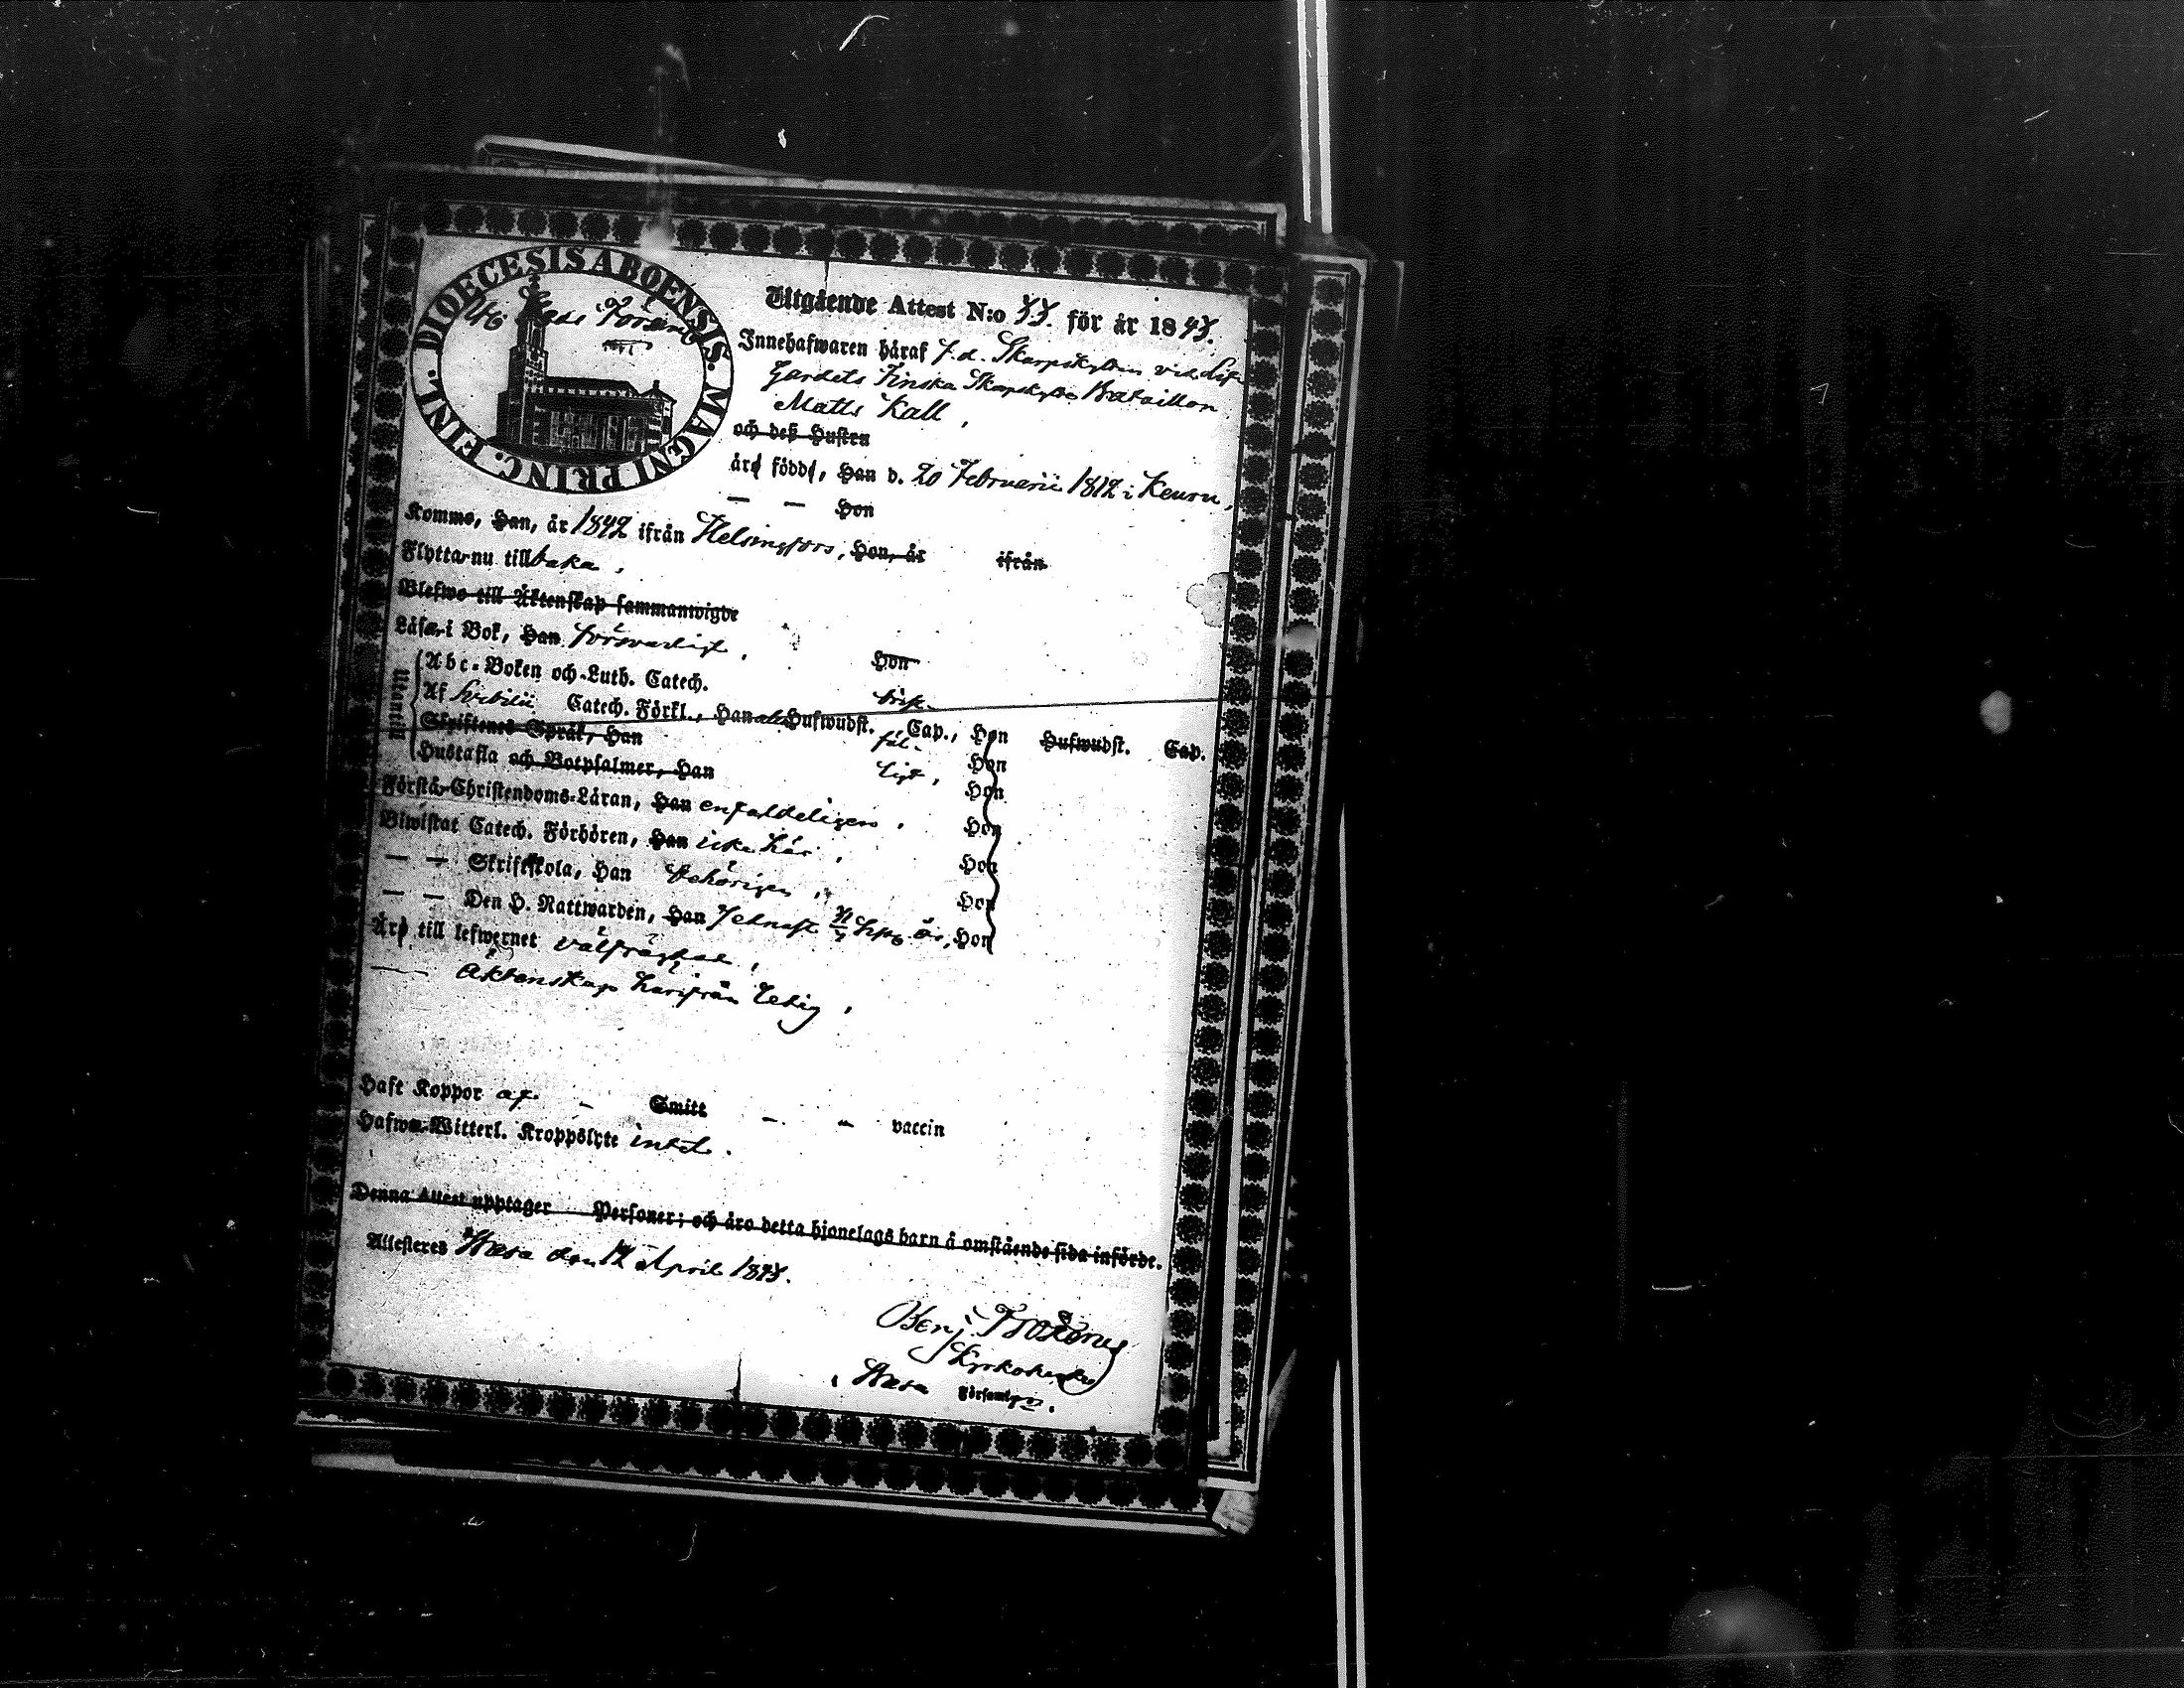 DIOECESIS ABOENSIS. MAGNI PRINC. FINL.
Utgående Attest N:o 33. för år 1843.
Innehafwaren häraf f.d. Skarpskytten vid Lif
Gardets Finska Skarpskytte Bataillon
Matts Kall,
och deß Hustru
äro födde, Han d. 20 Februarii 1812 i Keuru,
— — Hon
Kommo, Han, år 1842 ifrån Helsingfors, Hon, år ifrån
Flytta nu tillbaka,
Blefwo till Äktenskap sammanwigde
Läsa i Bok, Han försvarligt, Hon
Utantill
Abc-Boken och Luth. Catech. brist-
Af Catech. Förkl., Han Hufwudst. Cap., Hon Hufwudst. Cap.
Skriftenes Språk, Han fäl- Hon
Hustafla och Botpsalmer, Han ligt, Hon
Förstå Christendoms-Läran, Han enfaldeligen. Hon
Biwistat Catech. Förhören, Han icke här, Hon
— — Skriftskola, Han behörigen, Hon
— — Den H. Nattwarden, Han sednast år, Hon
Äro till lefwernet välfrägdad,
— Äktenskap härifrån ledig,
Haft Koppor af - Smitt - - vaccin
Hafwa Witterl. Kroppslyte intet.
Denna Attest upptager Personer; och äro detta hjonelags barn å omstående sida införde.
Attesteres Wasa den 12 April 1843.
Benj. Frosterus
Kyrkoherde
i Wasa Församlg.